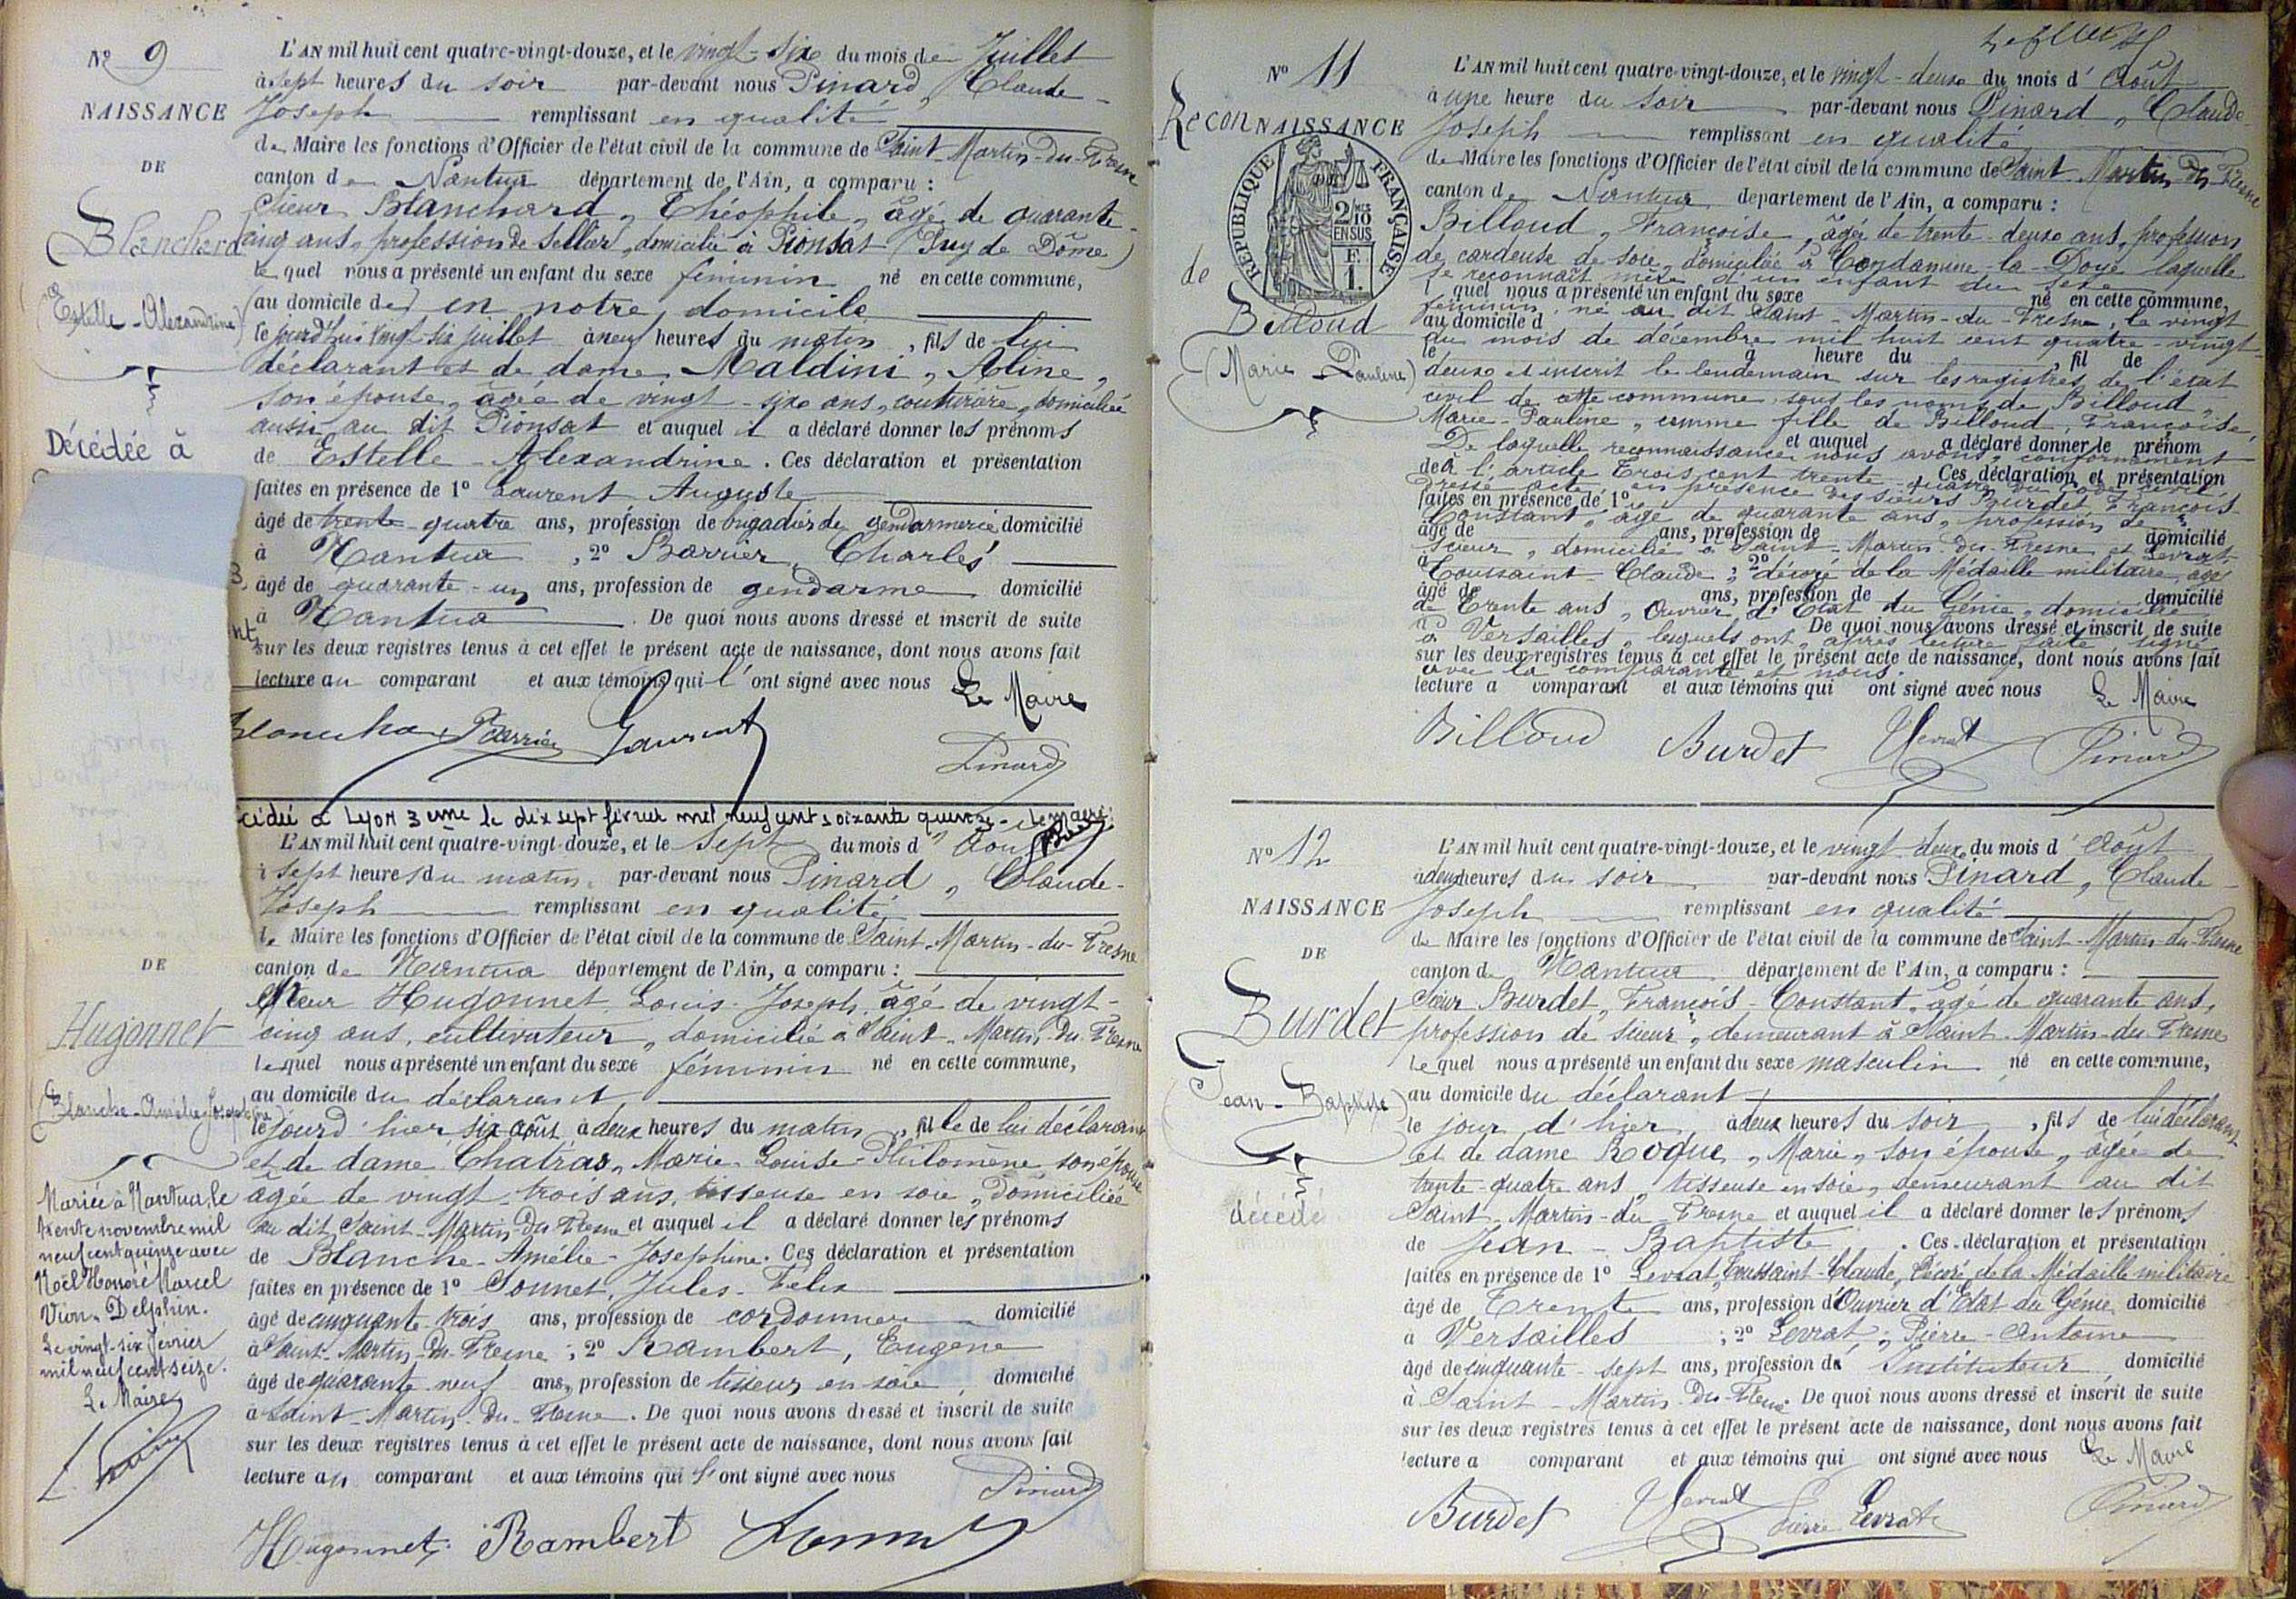 Nº 9
NAISSANCE
DE
Blanchard
(Estelle-Alexandrine)
Décédée à
L'AN mil huit cent quatre-vingt-douze, et le vingt-six du mois de Juillet
à sept heures du soir par-devant nous Pinard, Claude-
Joseph remplissant en qualité
de Maire les fonctions d'Officier de l'état civil de la commune de Saint-Martin-du-Fresne
canton de Nantua département de l'Ain, a comparu :
Sieur Blanchard, Théophile, âgé de quarante-
cinq ans, profession de sellier, domicilié à Pionsat (Puy de Dôme)
lequel nous a présenté un enfant du sexe féminin né en cette commune,
(au domicile de) en notre domicile
le jourd'hui vingt-six juillet à neuf heures du matin, fils de lui
déclarant et de dame Maldini, Aline,
son épouse, âgée de vingt-six ans, couturière, domiciliée
aussi au dit Pionsat et auquel il a déclaré donner les prénoms
de Estelle-Alexandrine. Ces déclaration et présentation
faites en présence de 1º Laurent Auguste
âgé de trente-quatre ans, profession de brigadier de gendarmerie domicilié
à Nantua, 2º Barrier, Charles
âgé de quarante-un ans, profession de gendarme domicilié
à Nantua. De quoi nous avons dressé et inscrit de suite
sur les deux registres tenus à cet effet le présent acte de naissance, dont nous avons fait
lecture au comparant et aux témoins qui l'ont signé avec nous Le Maire
Blancha Barrier Laurent
Pinard
cidée à Lyon 3eme le dix sept février mil neuf cent soixante quinze - Le maire
DE
Hugonnet
(Blanche-Amélie-Josephine)
Mariée à Nantua, le
trente novembre mil
neuf cent quinze avec
Noël Honoré Marcel
Vion-Delphin.
Le vingt-six février
mil neuf cent seize.
Le Maire
L'AN mil huit cent quatre-vingt-douze, et le sept du mois d'Août
à sept heures du matin, par-devant nous Pinard, Claude-
Joseph remplissant en qualité
de Maire les fonctions d'Officier de l'état civil de la commune de Saint-Martin-du-Fresne
canton de Nantua département de l'Ain, a comparu :
Sieur Hugonnet, Louis-Joseph, âgé de vingt-
cinq ans, cultivateur, domicilié à Saint-Martin-du-Fresne
lequel nous a présenté un enfant du sexe féminin né en cette commune,
au domicile du déclarant
le jourd'hier six août à deux heures du matin, fille de lui déclarant
et de dame Chatras, Marie-Louise-Philomène son épouse
âgée de vingt-trois ans, tisseuse en soie, domiciliée
au dit Saint-Martin-du-Fresne et auquel il a déclaré donner les prénoms
de Blanche-Amélie-Josephine. Ces déclaration et présentation
faites en présence de 1º Sonnet, Jules-Felix
âgé de cinquante-trois ans, profession de cordonnier domicilié
à Saint-Martin-du-Fresne; 2º Rambert, Eugène
âgé de quarante-neuf ans, profession de tisseur en soie, domicilié
à Saint-Martin-du-Fresne. De quoi nous avons dressé et inscrit de suite
sur les deux registres tenus à cet effet le présent acte de naissance, dont nous avons fait
lecture au comparant et aux témoins qui l'ont signé avec nous
Pinard
Hugonnet Rambert
Nº 11
ReconNAISSANCE
RÉPUBLIQUE FRANÇAISE
2/10
EN SUS
F.
1.
de
Billoud
(Marie Pauline)
L'AN mil huit cent quatre-vingt-douze, et le vingt-deux du mois d'Août
à une heure du soir par-devant nous Pinard, Claude-
Joseph remplissant en qualité
de Maire les fonctions d'Officier de l'état civil de la commune de Saint-Martin-du-Fresne
canton de Nantua département de l'Ain, a comparu :
Billoud, Françoise, âgée de trente-deux ans, profession
de cardeuse de soie, domiciliée à Condamine-la-Doye laquelle
se reconnaît mère d'un enfant du sexe
l quel nous a présenté un enfant du sexe né en cette commune,
féminin, né au dit Saint-Martin-du-Fresne, le vingt
au domicile d
du mois de décembre mil huit cent quatre-vingt-
le à heure du , fil de
deux et inscrit le lendemain sur les registres de l'état
civil de cette commune sous les noms de Billoud,
Marie-Pauline, comme fille de Billoud, Françoise,
et auquel a déclaré donner le prénom
De laquelle reconnaissance nous avons, conformément
de Ces déclaration et présentation
à l'article trois cent trente-quatre du code civil
dressé acte, en présence des sieurs Burdet François-
faites en présence de 1º
Constant, âgé de quarante ans, profession de
âgé de ans, profession de domicilié
scieur, domicilié à Saint-Martin-du-Fresne et Levrat
à ; 2º
Toussaint-Claude, décoré de la Médaille militaire, âgé
âgé de ans, profession de domicilié
de trente ans, Ouvrier d'Etat du Génie, domicilié
à De quoi nous avons dressé et inscrit de suite
à Versailles, lesquels ont, après lecture faite signé
sur les deux registres tenus à cet effet le présent acte de naissance, dont nous avons fait
avec la comparante et nous.
lecture a comparant et aux témoins qui ont signé avec nous Le Maire
Billoud Burdet Levrat Pinard
Nº 12
NAISSANCE
DE
Burdet
(Jean-Baptiste)
décédé
L'AN mil huit cent quatre-vingt-douze, et le vingt deux du mois d'Août
à deux heures du soir par-devant nous Pinard, Claude-
Joseph remplissant en qualité
de Maire les fonctions d'Officier de l'état civil de la commune de Saint-Martin-du-Fresne
canton de Nantua département de l'Ain, a comparu :
Sieur Burdet, François-Constant, âgé de quarante ans,
profession de scieur, demeurant à Saint-Martin-du-Fresne
lequel nous a présenté un enfant du sexe masculin né en cette commune,
au domicile du déclarant
le jour d'hier à deux heures du soir, fils de lui déclarant
et de dame Roque, Marie, son épouse, âgée de
trente-quatre ans, tisseuse en soie, demeurant au dit
Saint-Martin-du-Fresne et auquel il a déclaré donner les prénoms
de Jean-Baptiste. Ces déclaration et présentation
faites en présence de 1º Levrat, Toussaint-Claude, décoré de la Médaille militaire
âgé de Trente ans, profession d'Ouvrier d'Etat du Génie domicilié
à Versailles; 2º Levrat, Pierre-Antoine
âgé de cinquante-sept ans, profession de Instituteur domicilié
à Saint-Martin-du-Fresne. De quoi nous avons dressé et inscrit de suite
sur les deux registres tenus à cet effet le présent acte de naissance, dont nous avons fait
lecture a comparant et aux témoins qui ont signé avec nous Le Maire
Burdet Levrat Pierre Levrat Pinard